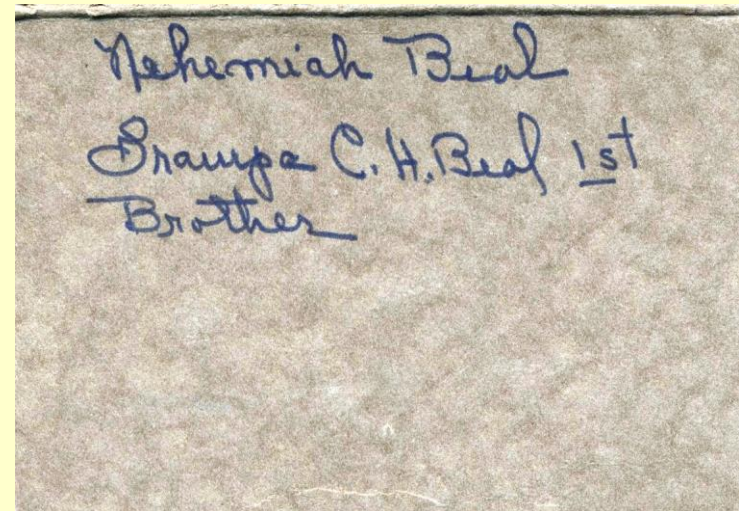 Nehemiah Beal
Grampa C. H. Beal 1st
Brother